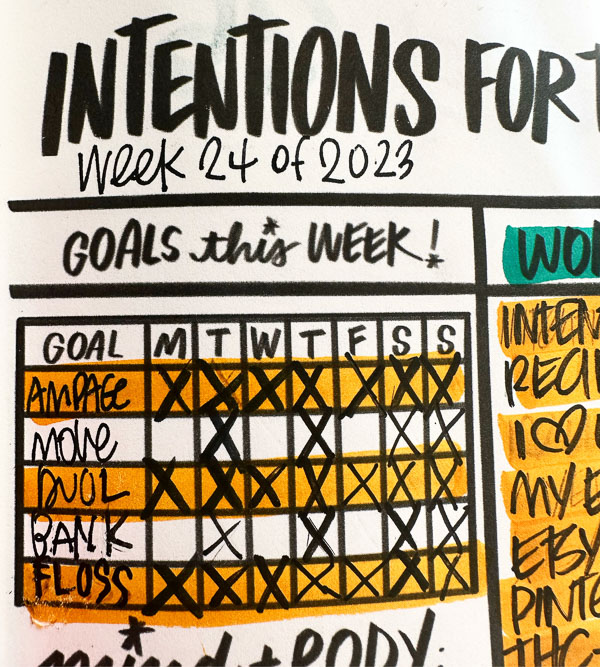 INTENTIONS FOR
Week 24 of 2023
GOALS this WEEK!
GOAL M T W T F S S
AMPAGE X X X X X X X
MOVE X X X X
DUOL X X X X X X X
BANK X X X X
FLOSS X X X X X X X
mind + BODY:
WO
INTEN
RECI
I ♡
MY E
ETSY
PINTE
THC